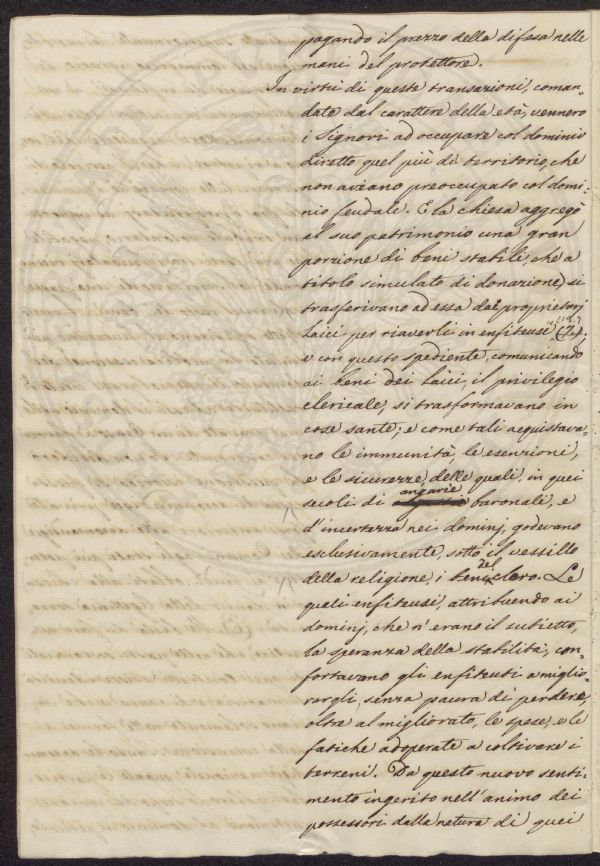 pagando il prezzo della difesa nelle
mani del protettore.
In virtù di queste transazioni, coman-
date dal carattere della età, vennero
i Signori ad occupare col dominio
diretto quel più di territorio, che
non aveano preoccupato col domi-
nio feudale. E la chiesa aggregò
al suo patrimonio una gran
porzione di beni stabili, che a
titolo simulato di donazione si
trasferivano ad essa dai proprietarj
laici per riaverli in enfiteusi
e con questo spediente, comunicando
ai beni dei laici, il privilegio
clericale, si trasformavano in
cose sante; e come tali acquistava-
no le immunità, le esenzioni,
e le sicurezze, delle quali, in quei
secoli di angarie baronali, e
d'incertezza nei dominj, godevano
esclusivamente, sotto il vessillo
della religione, i beni del clero. Le
quali enfiteusi, attribuendo ai
dominj, che n'erano il subietto,
la speranza della stabilità, con-
fortavano gli enfiteuti a miglio-
rargli, senza paura di perdere,
oltre al migliorato, le spese, e le
fatiche adoperate a coltivare i
terreni. Da questo nuovo senti-
mento ingerito nell'animo dei
possessori dalla natura di quei